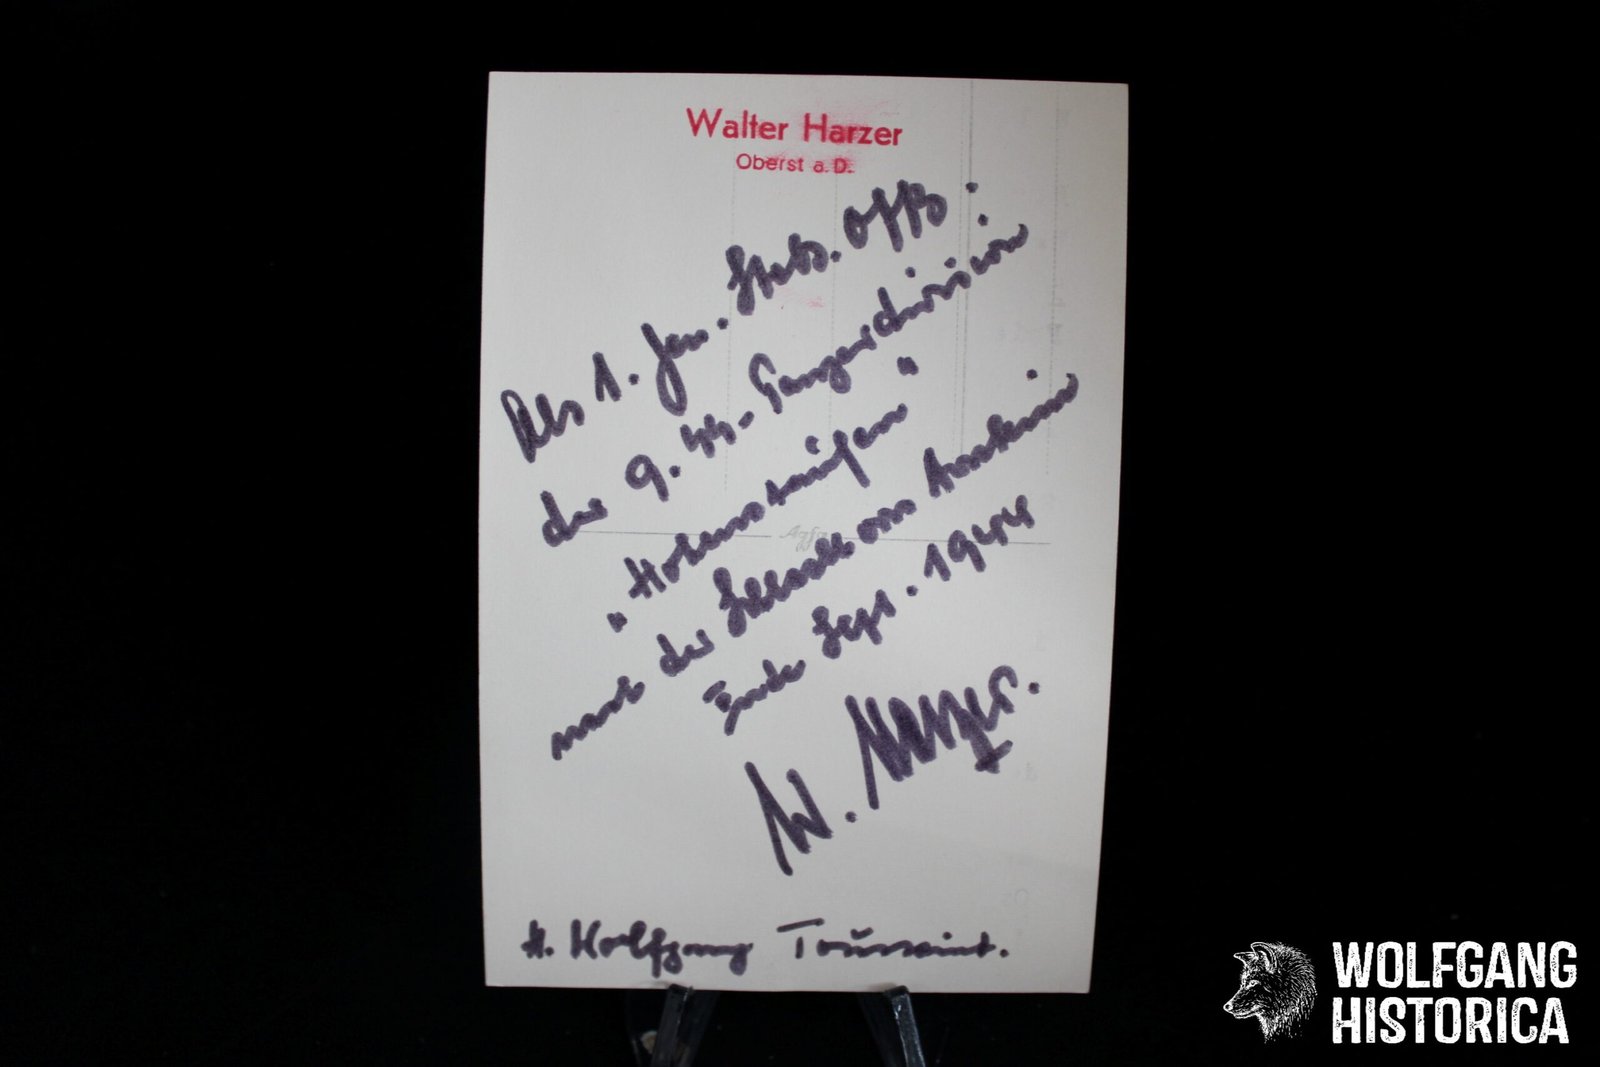 Walter Harzer
Oberst a. D.
Als 1. Gen. Stabs. Offz.
der 9. SS-Panzerdivision
„Hohenstaufen"
nach der Schlacht von Arnheim
Ende Sept. 1944
W. Harzer.
H. Wolfgang Toussaint.
Agfa
WOLFGANG
HISTORICA